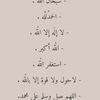 - سبحان الله .
- الحمدلله .
- لا إله إلا الله .
- الله أكبر .
- استغفر الله .
- لاحول ولا قوة إلا بالله .
- اللهم صل وسلم على محمد .